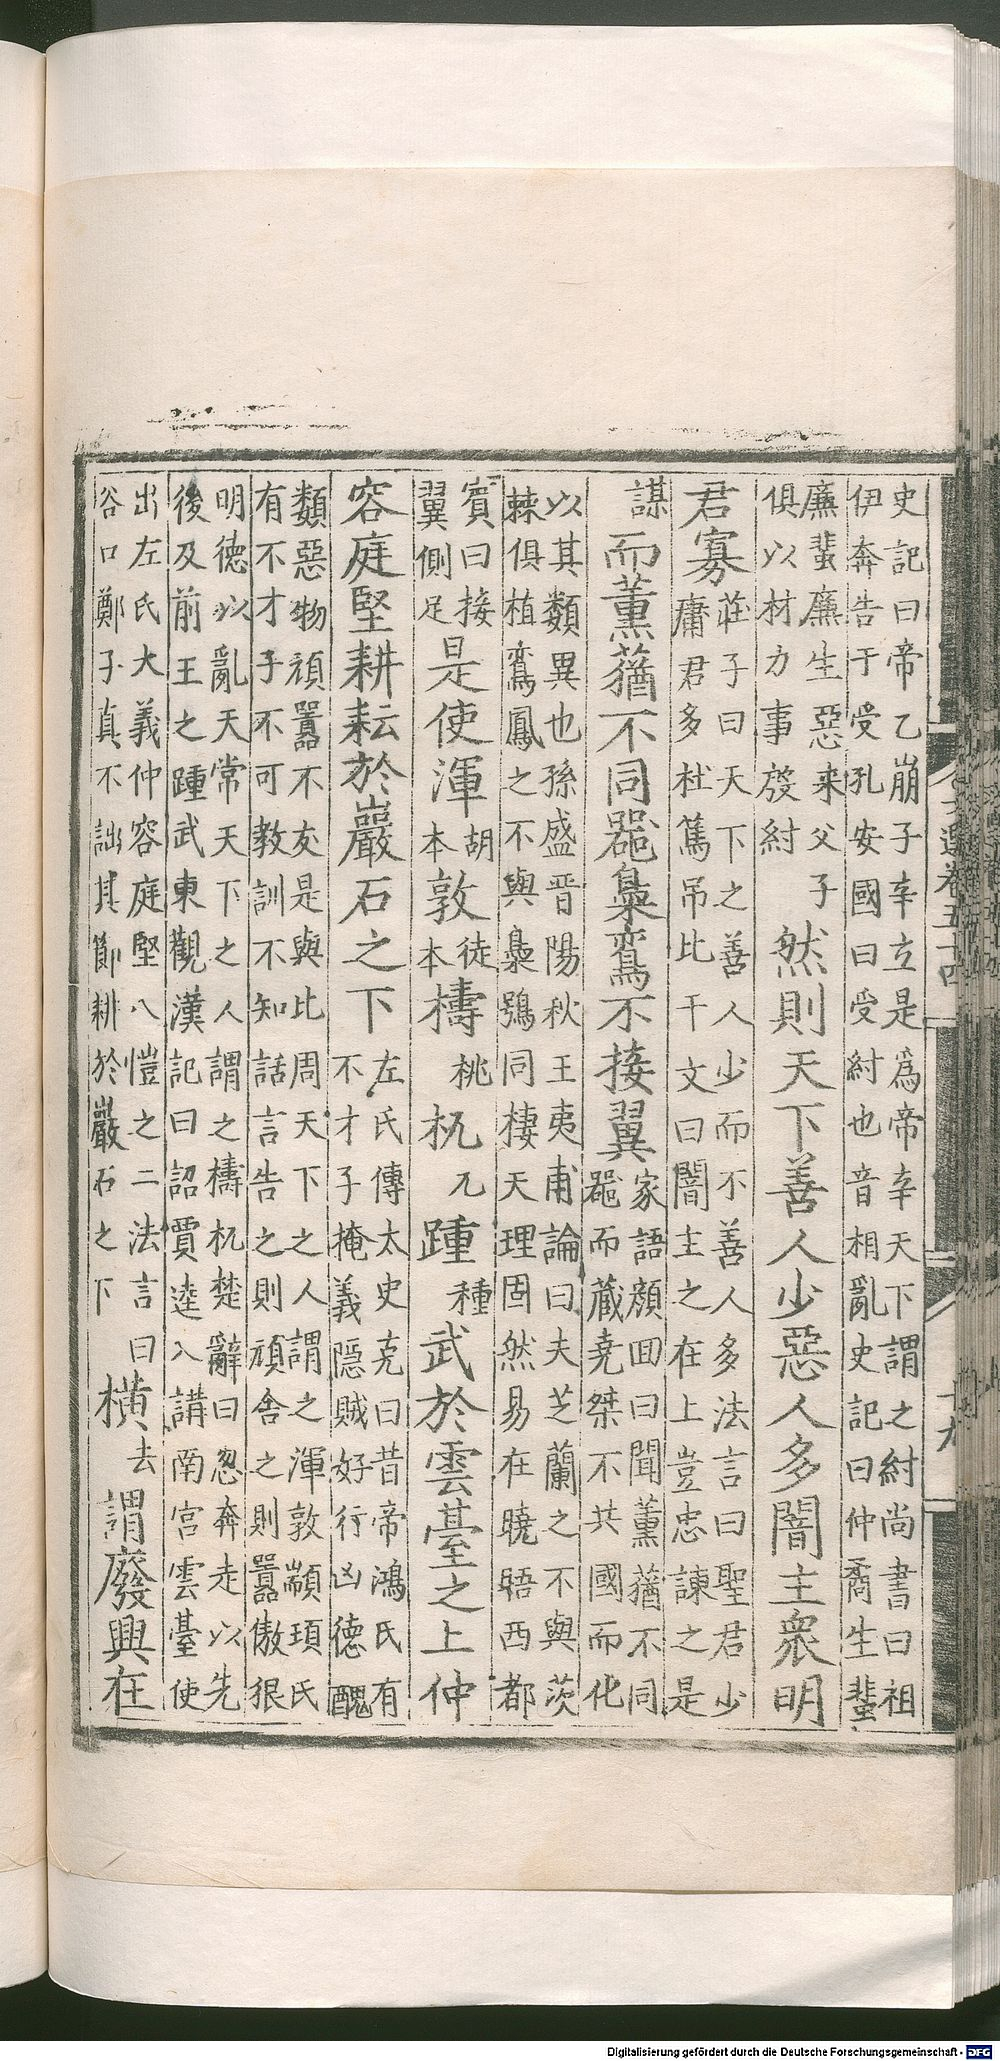 六臣文選卷五十四
十九
史記曰帝乙崩子辛立是為帝辛天下謂之紂尚書曰祖
伊奔告于受孔安國曰受紂也音相亂史記曰仲矞生蜚
廉蜚廉生惡来父子
俱以材力事殷紂
然則天下善人少惡人多闇主衆明
君寡
莊子曰天下之善人少而不善人多法言曰聖君少
庸君多杜篤吊比干文曰闇主之在上豈忠諫之是
謀
而薰蕕不同器梟鸞不接翼
家語顔回曰聞薰蕕不同
器而藏堯桀不共國而化
以其類異也孫盛晋陽秋王夷甫論曰夫芝蘭之不與茨
棘俱植鸞鳳之不與梟鴞同棲天理固然易在曉晤西都
賓曰接
翼側足
是使渾胡本敦徒本檮桃杌兀踵種武於雲臺之上仲
容庭堅耕耘於巖石之下
左氏傳太史克曰昔帝鴻氏有
不才子掩義隠賊好行凶德醜
類惡物頑嚚不友是與比周天下之人謂之渾敦顓頊氏
有不才子不可教訓不知話言告之則頑舍之則嚚傲狠
明德以亂天常天下之人謂之檮杌楚辭曰忽奔走以先
後及前王之踵武東觀漢記曰詔賈逵入講南宮雲臺使
出左氏大義仲容庭堅八愷之二法言曰
谷口鄭子真不詘其節耕於巖石之下
横去謂廢興在
Digitalisierung gefördert durch die Deutsche Forschungsgemeinschaft - DFG